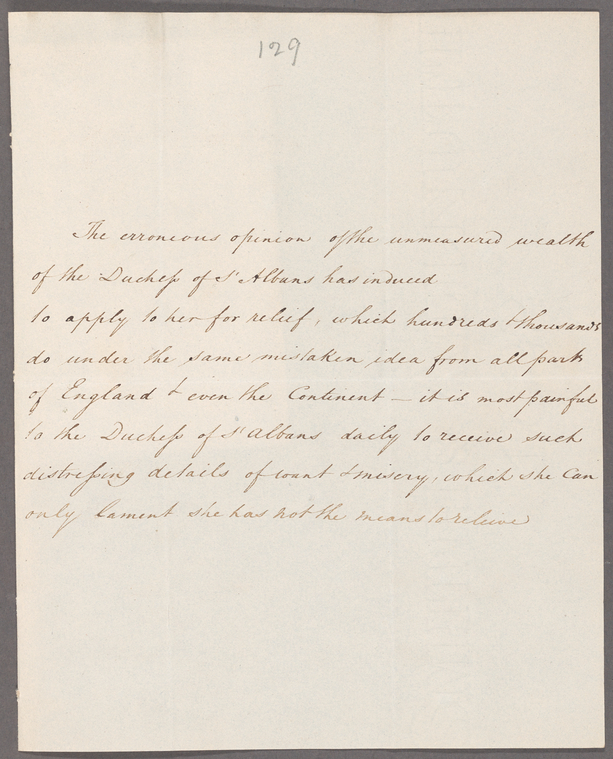 129
The erroneous opinion of the unmeasured wealth
of the Duchess of St Albans has induced
to apply to her for relief, which hundreds & thousands
do under the same mistaken idea from all parts
of England & even the Continent — it is most painful
to the Duchess of St Albans daily to receive such
distressing details of want & misery, which she can
only lament she has not the means to releive